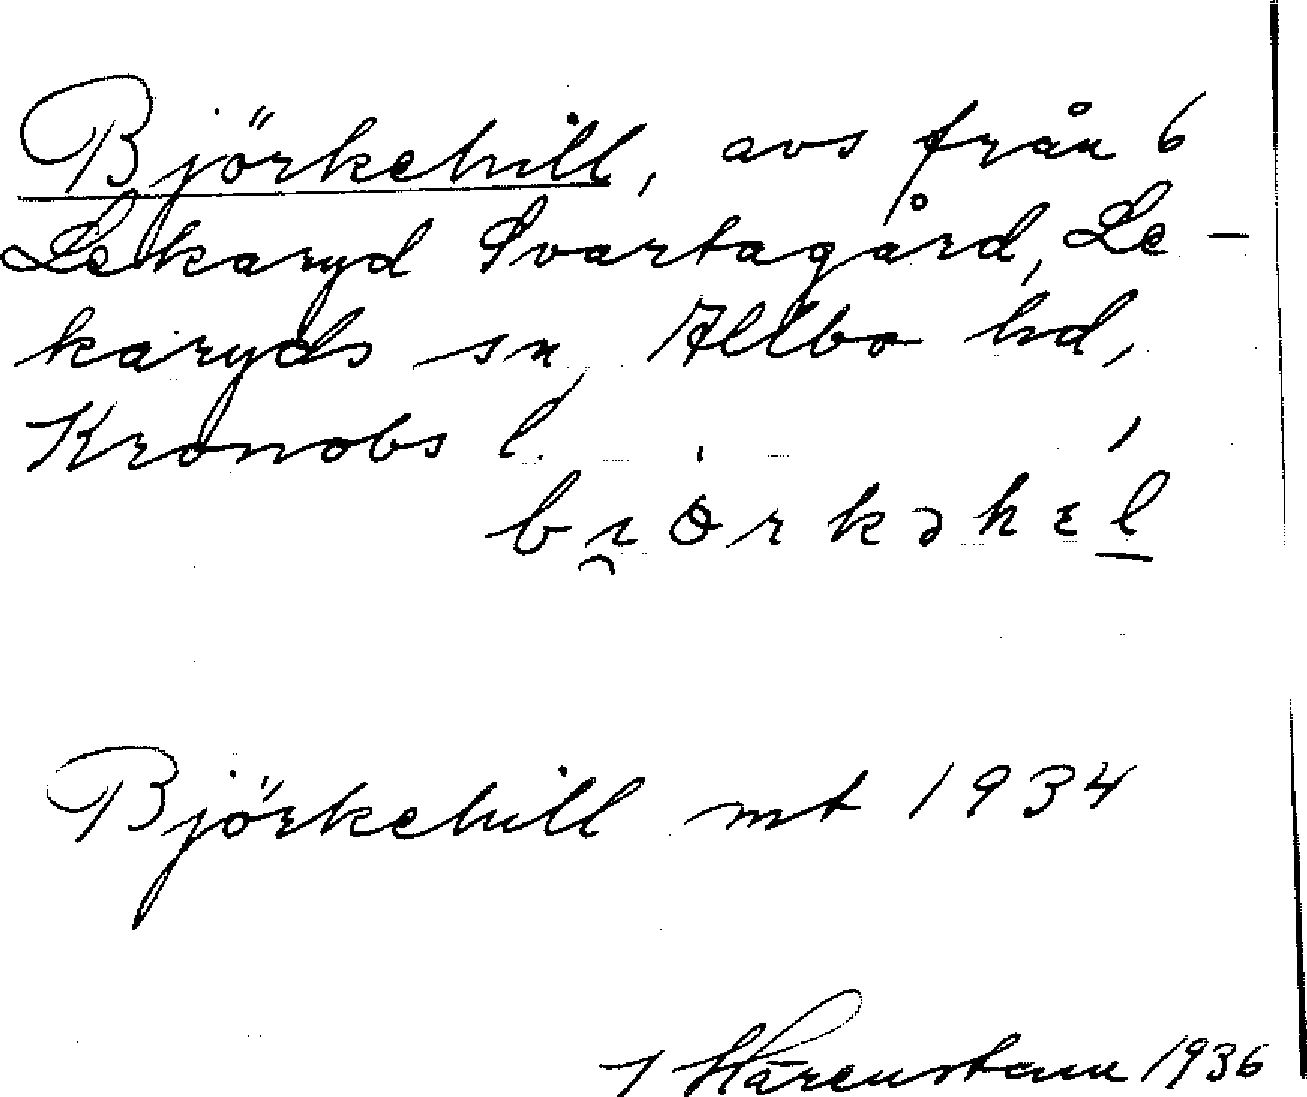 Björkehill, avs från 6
Lekaryd Svartagård, Le-
karyds sn, Allbo hd,
Kronobs l.
bı̯örkəhɛl
Björkehill mt 1934
J Härenstam 1936